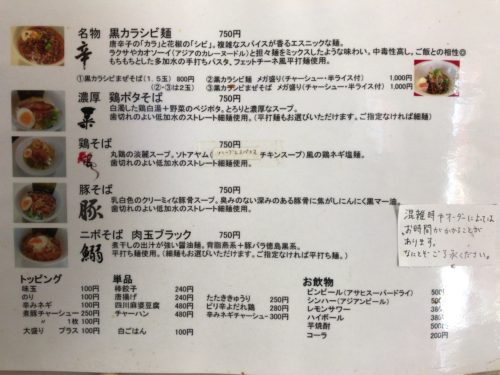 名物 黒カラシビ麺 750円
辛
唐辛子の「カラ」と花椒の「シビ」。複雑なスパイスが香るエスニックな麺。
ラクサやカオソーイ(アジアのカレーヌードル)と担々麺をミックスしたような味わい、中毒性高し。ご飯との相性◎
もちもちとした多加水の手打ちパスタ、フェットチーネ風平打麺を使用。
①黒カラシビまぜそば(1.5玉) 800円 ②黒カラシビ麺 メガ盛り(チャーシュー・半ライス付) 1,000円
(②・③は2玉) ③黒カラシビまぜそば メガ盛り(チャーシュー・半ライス付) 1,000円
濃厚 鶏ポタそば 750円
白濁した鶏白湯+野菜のベジポタ、とろりと濃厚なスープ。
歯切れのよい低加水のストレート細麺使用。(平打麺もお選びいただけます。ご指定なければ細麺)
鶏そば 750円
丸鶏の淡麗スープ。ソトアヤム(ハーブとスパイスのチキンスープ)風の鶏ネギ塩麺。
歯切れのよい低加水のストレート細麺使用。
豚そば 750円
豚
乳白色のクリーミィな豚骨スープ。臭みのない深みのある豚骨に焦がしにんにく黒マー油。
歯切れのよい低加水のストレート細麺使用。
ニボそば 肉玉ブラック 750円
鰯
煮干しの出汁が強い醤油麺。背脂燕系+豚バラ徳島黒系。
平打ち麺使用。(細麺もお選びいただけます。ご指定なければ平打ち麺)
混雑時やオーダーによっては
お時間がかかることが
あります。
なにとぞご了承ください。
トッピング
味玉 100円
のり 100円
辛みネギ 100円
煮豚チャーシュー 250円
〃 1枚 100円
大盛り プラス 100円
単品
棒餃子 240円
唐揚げ 240円
四川麻婆豆腐 480円
チャーハン 480円
白ごはん 140円
たたききゅうり 250円
ピリ辛よだれ鶏 280円
辛みネギチャーシュー 300円
お飲物
ビンビール(アサヒスーパードライ) 500円
シンハー(アジアンビール) 500円
レモンサワー
ハイボール
芋焼酎
コーラ 200円